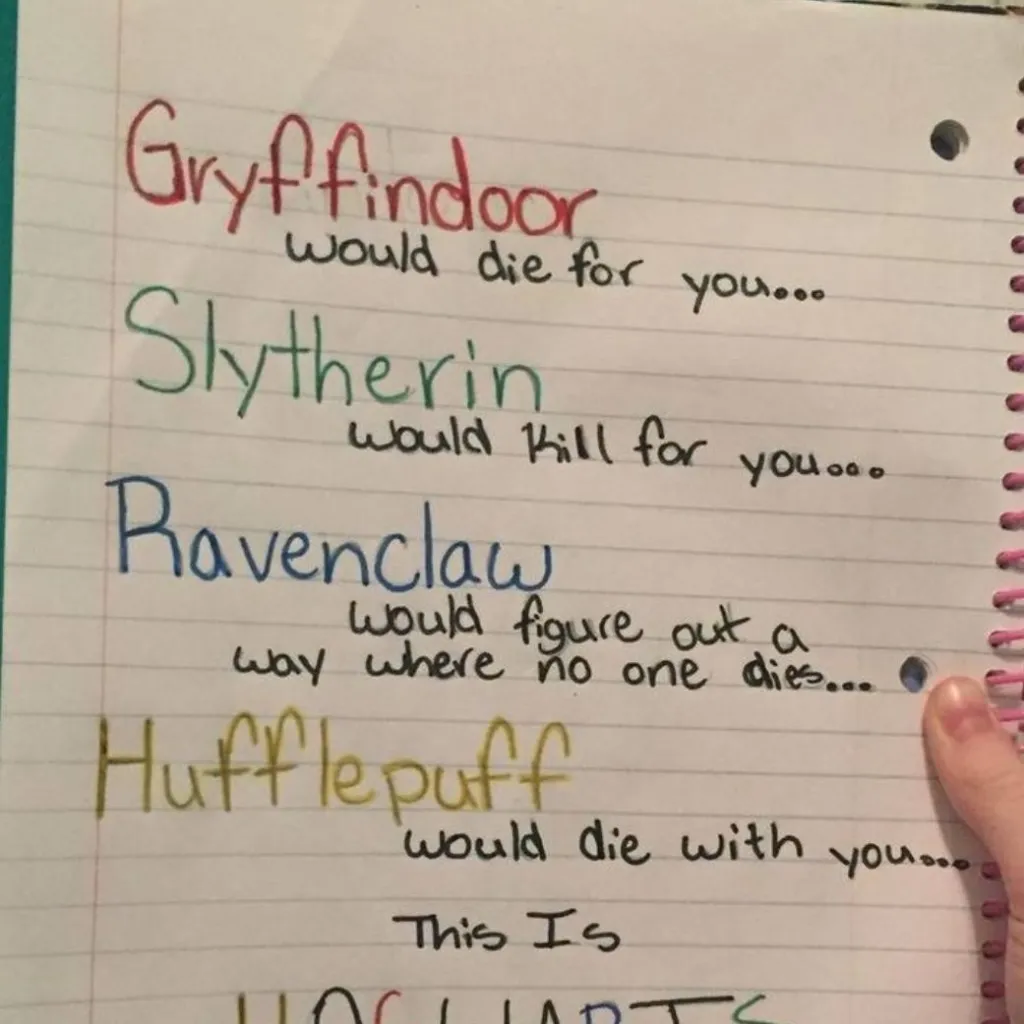 Gryffindoor
would die for you...
Slytherin
would kill for you...
Ravenclaw
would figure out a
way where no one dies...
Hufflepuff
would die with you...
This Is
HOGWARTS